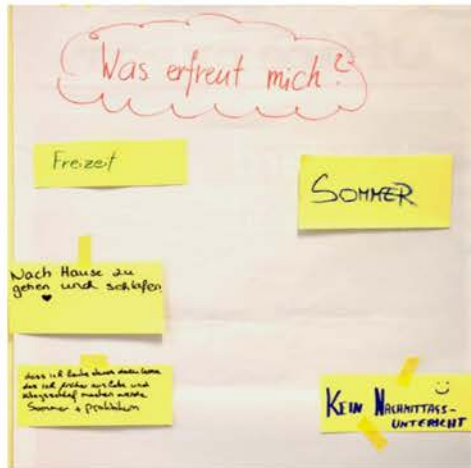 Was erfreut mich?
Freizeit
SOMMER
Nach Hause zu
gehen und schlafen
♥
dass ich heute
das ich früher aus habe und
machen werde
Sommer + praktikum
KEIN NACHMITTAGS-
UNTERRICHT